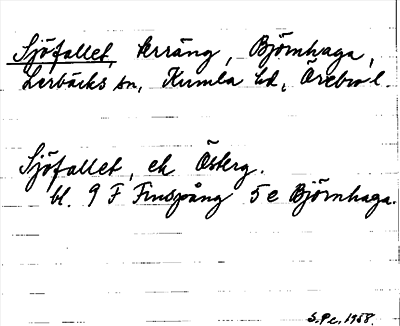 Sjöfallet, terräng, Björnhaga,
Lerbäcks sn, Kumla hd, Örebro l.
Sjöfallet, ek Österg.
bl. 9 F Finspång 5 e Björnhaga.
S.Pe. 1958.